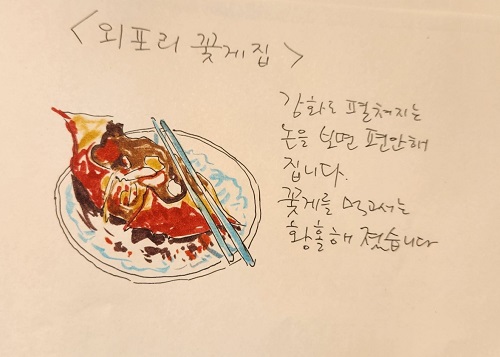 <외포리 꽃게집>
강화로 펼쳐지는
논을 보면 편안해
집니다.
꽃게를 먹고서는
황홀해 졌습니다